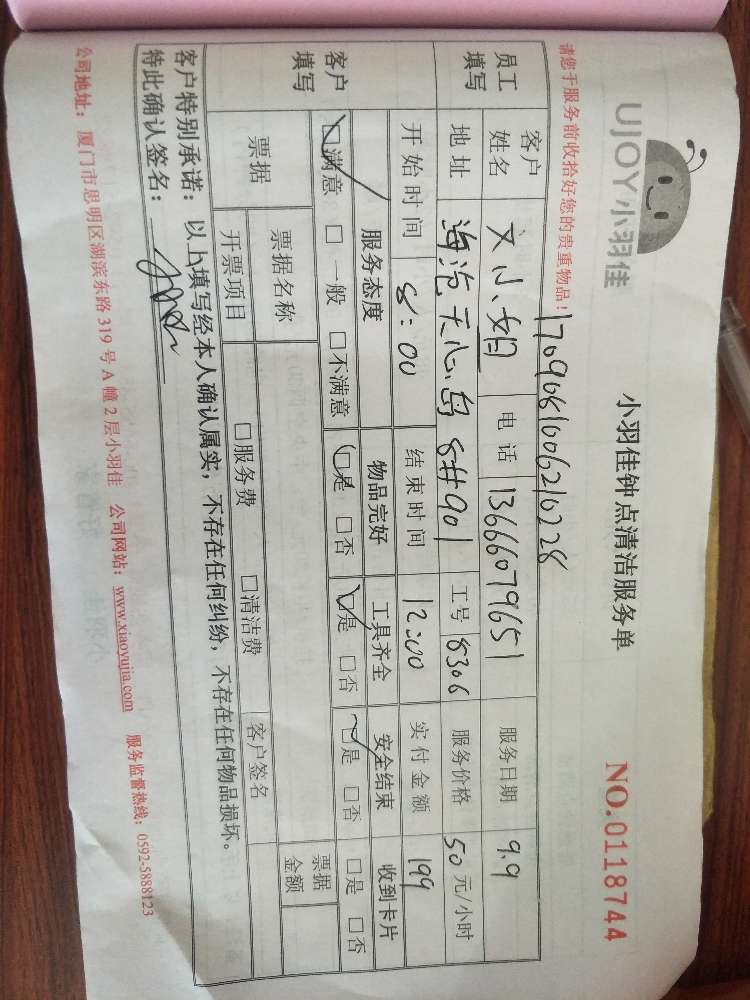 UJOY小羽佳
小羽佳钟点清洁服务单
NO.0118744
请您于服务前收拾好您的贵重物品!
1709081006210228
员工填写
客户姓名 文小姐 电话 13666079651 服务日期 9.9
地址 海沧天心岛8#901 工号 8306 服务价格 50元/小时
开始时间 8:00 结束时间 12:00 实付金额 199
客户填写
服务态度 物品完好 工具齐全 安全结束 收到卡片
□满意 □一般 □不满意 □是 □否 □是 □否 □是 □否 □是 □否
票据 票据名称 票据金额
开票项目 □服务费 □清洁费 客户签名
客户特别承诺:以上填写经本人确认属实,不存在任何纠纷,不存在任何物品损坏。
特此确认签名:
公司地址:厦门市思明区湖滨东路319号A幢2层小羽佳 公司网站:www.xiaoyujia.com 服务监督热线:0592-5888123